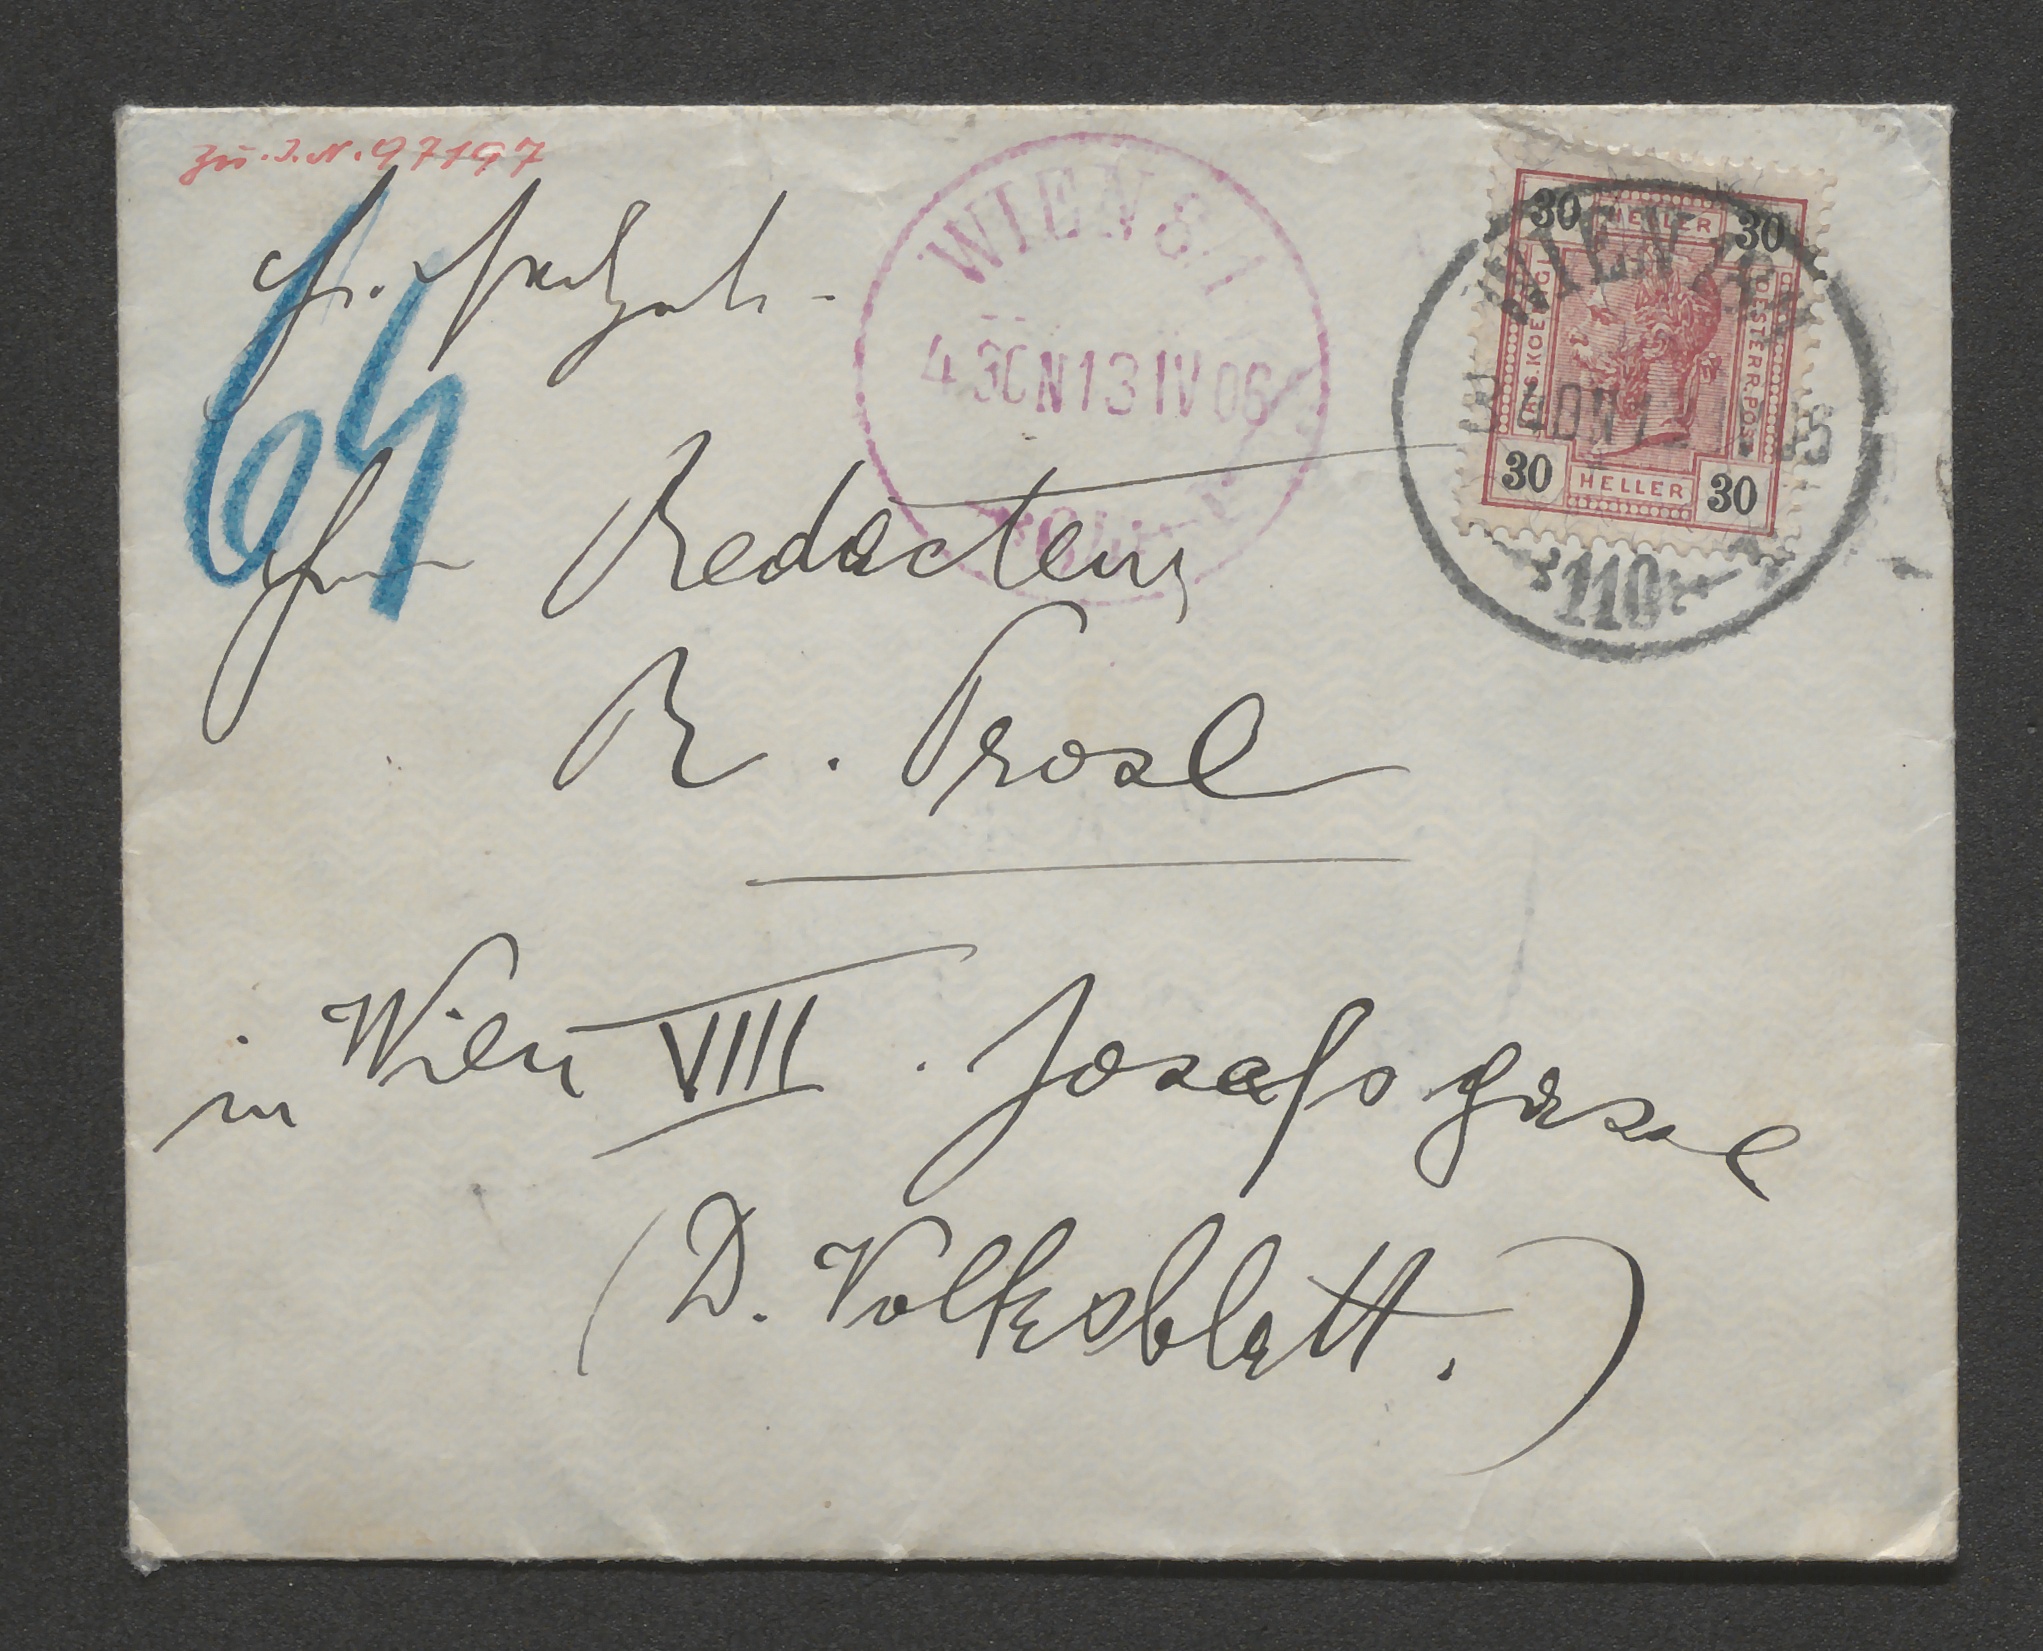 Zu I.N. 97197
WIEN 8/1
4 30N 13 IV 06
30 HELLER 30
KAIS. KOENIGL.
OESTERR. POST
30 HELLER 30
WIEN
*110*
64
Redacteur
R. Prosl
in Wien VIII. Josefsgasse
(D. Volksblatt.)